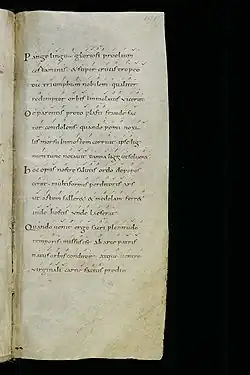 Pange lingua gloriosi proelium
certaminis & super crucis tropeo
dic triumphum nobilem qualiter
redemptor orbis immolatus vicerit
De parentis proto plasti fraude fac
tor condolens quando pomi noxi
alis morsu in mortem corruit ipse lig
num tunc notavit damna ligni ut solveret
Hoc opus nostre salutis ordo depopos
cerat multiformis perditoris ars
ut artem falleret & medelam ferr&
inde hostis unde leserat
Quando venit ergo sacri plenitudo
temporis missus est ab arce patris
natus orbis conditor atque ventre
virginali carne factus prodiit